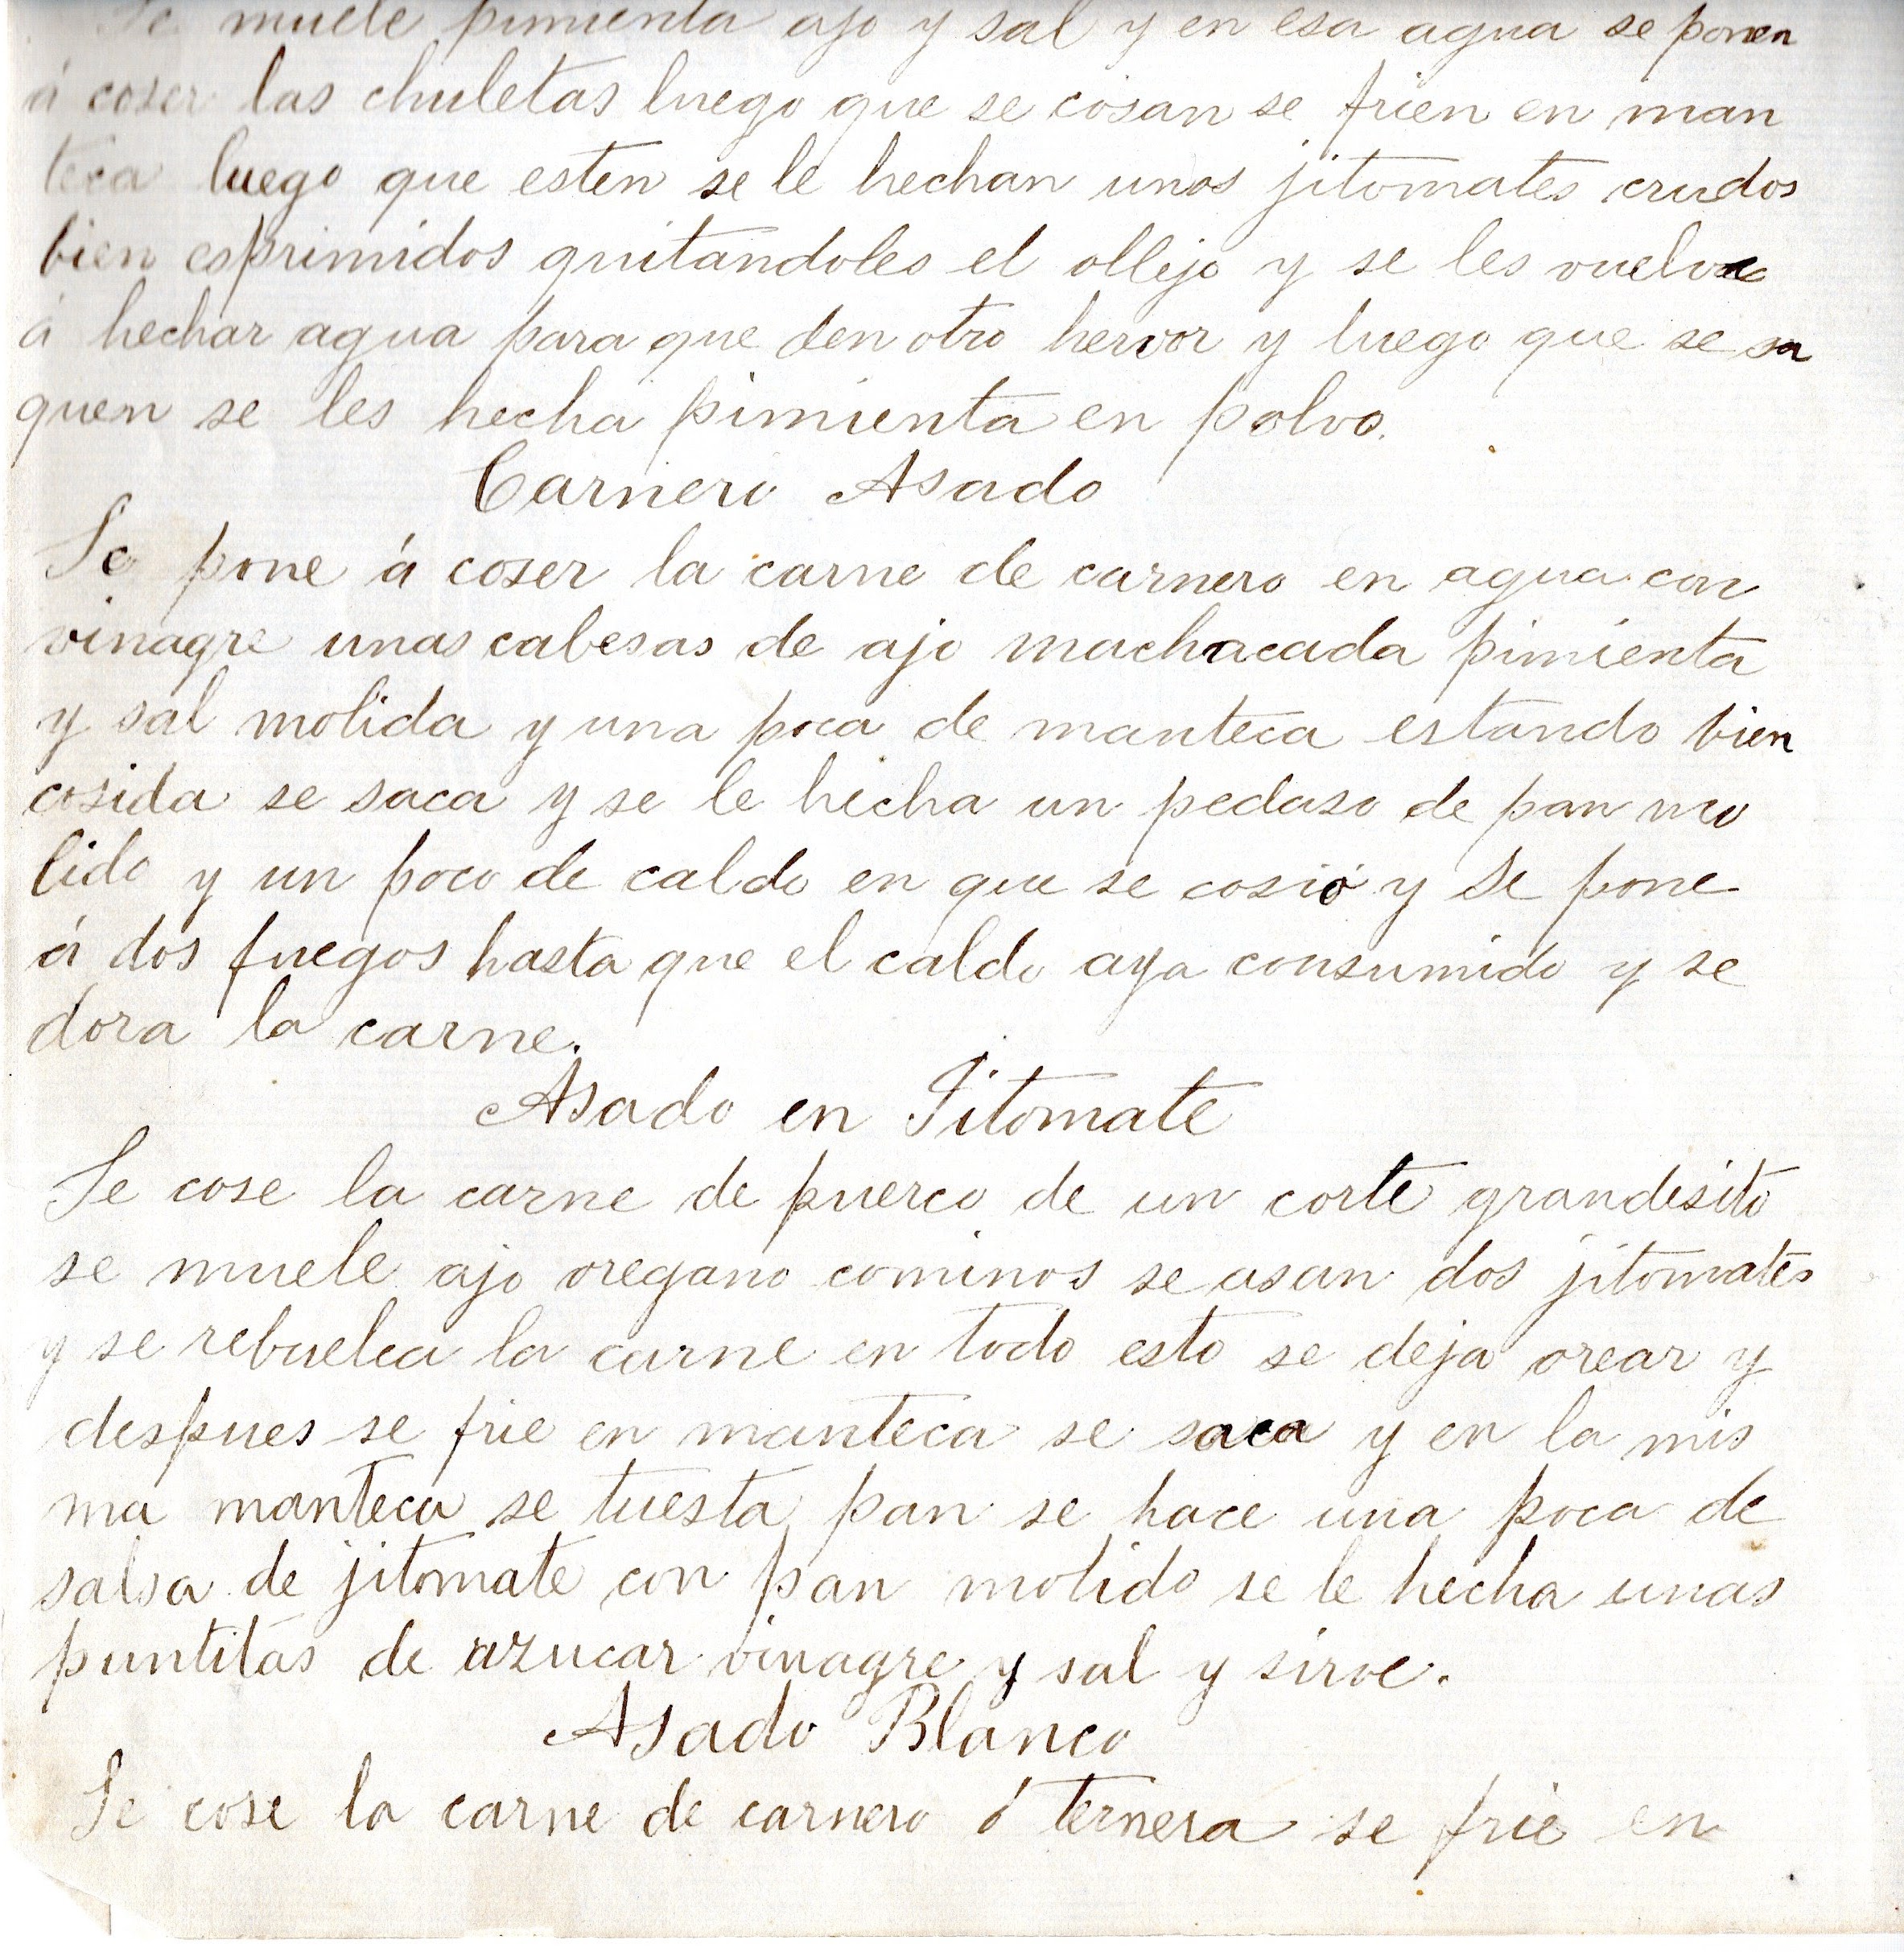 Se muele pimienta ajo y sal y en esa agua se ponen
á coser las chuletas luego que se cosan se frien en man
teca luego que esten se le hechan unos jitomates crudos
bien esprimidos quitandoles el ollejo y se les vuelve
á hechar agua para que den otro hervor y luego que se sa
quen se les hecha pimienta en polvo.
Carnero Asado
Se pone á coser la carne de carnero en agua con
vinagre unas cabesas de ajo machacada pimienta
y sal molida y una poca de manteca estando bien
cosida se saca y se le hecha un pedaso de pan mo
lido y un poco de caldo en que se cosió y se pone
á dos fuegos hasta que el caldo aya consumido y se
dora la carne.
Asado en Jitomate
Se cose la carne de puerco de un corte grandesito
se muele ajo oregano cominos se asan dos jitomates
y se rebuelca la carne en todo esto se deja orear y
despues se frie en manteca se saca y en la mis
ma manteca se tuesta pan se hace una poca de
salsa de jitomate con pan molido se le hecha unas
puntitas de azucar vinagre y sal y sirve.
Asado Blanco
Se cose la carne de carnero ó ternera se frie en